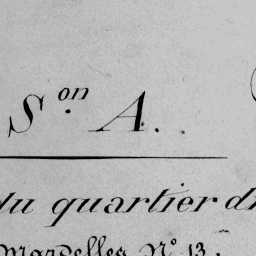 S.on A.
du quartier d
Marvelles N° 13.